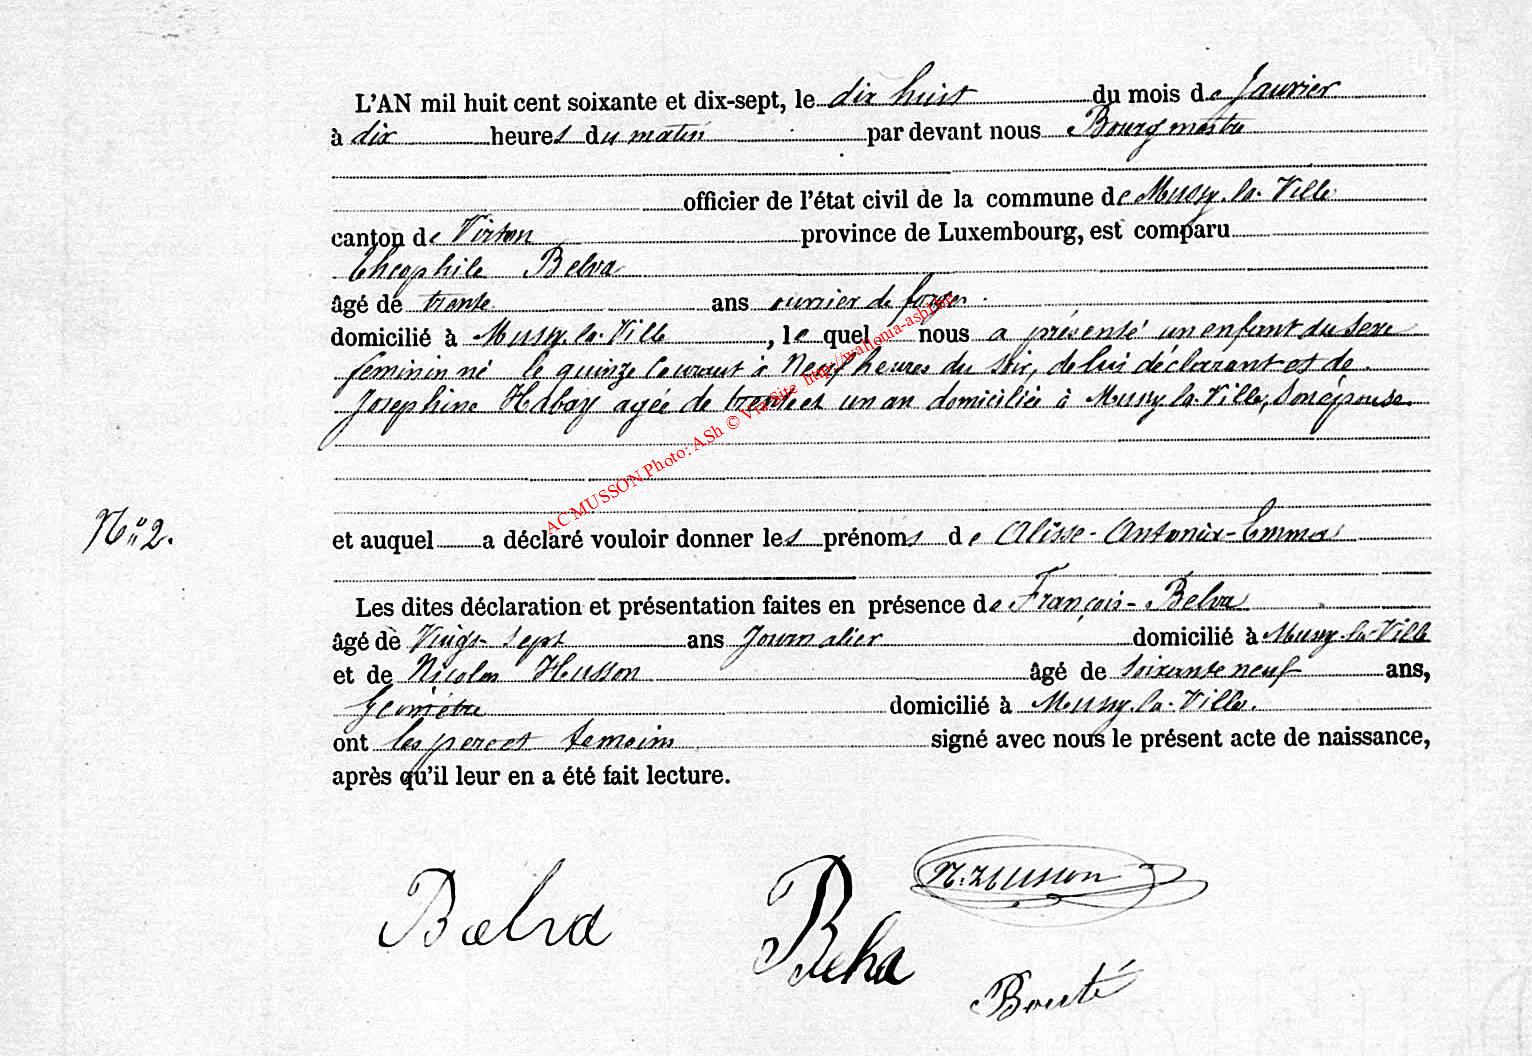 L'AN mil huit cent soixante et dix-sept, le dix huit du mois de Janvier
à dix heures du matin par devant nous Bourgmestre
officier de l'état civil de la commune de Mussy-la-Ville
canton de Virton province de Luxembourg, est comparu
Théophile Belva
âgé de trente ans ouvrier de forges
domicilié à Mussy-la-Ville, le quel nous a présenté un enfant du sexe
feminin né le quinze Courant à Neuf heures du soir, de lui déclarant et de
Josephine Habay agée de trente et un an domiciliée à Mussy la-Ville, son épouse.
N° 2.
et auquel a déclaré vouloir donner les prénoms de Alisse-Antonia-Emma
Les dites déclaration et présentation faites en présence de François-Belva
âgé de Vingt-sept ans Journalier domicilié à Mussy-la-Ville
et de Nicolas Husson âgé de soixante neuf ans,
Géomètre domicilié à Mussy-la-Ville.
ont les pere et temoins signé avec nous le présent acte de naissance,
après qu'il leur en a été fait lecture.
N. Husson
Belva Belva
Bouté
AC MUSSON Photo: ASh © Via Site http://wallonia-asbl.be